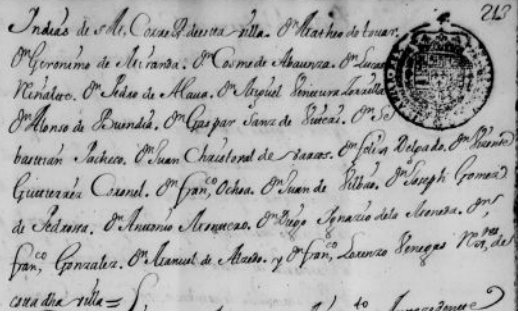 213
Indias de s. M. Corre.r de esta villa. Dn Matheo de tovar.
Dn Geronimo de Miranda. Dn Cosme de Abaunza. Dn Lucas
Dn Pedro de Alaua. Dn Miguel Ventura Zorrilla
Dn Alonso de Buendia. Dn Gaspar Sanz de Dn Se
bastian Pacheco. Dn Juan Christoual de Dn Felix Delgado. Dn Vizente
Gutierrez Coronel. Dn franco, Ochoa. Dn Juan de Bilbao. Dn Joseph Gomez
de Pedrosa. Dn Antonio Dn Diego Ignazio dela Moneda. Dn
franco, Gonzalez. Dn Manuel de y Dn franco, Lorenzo Venegas de
esta dha villa =